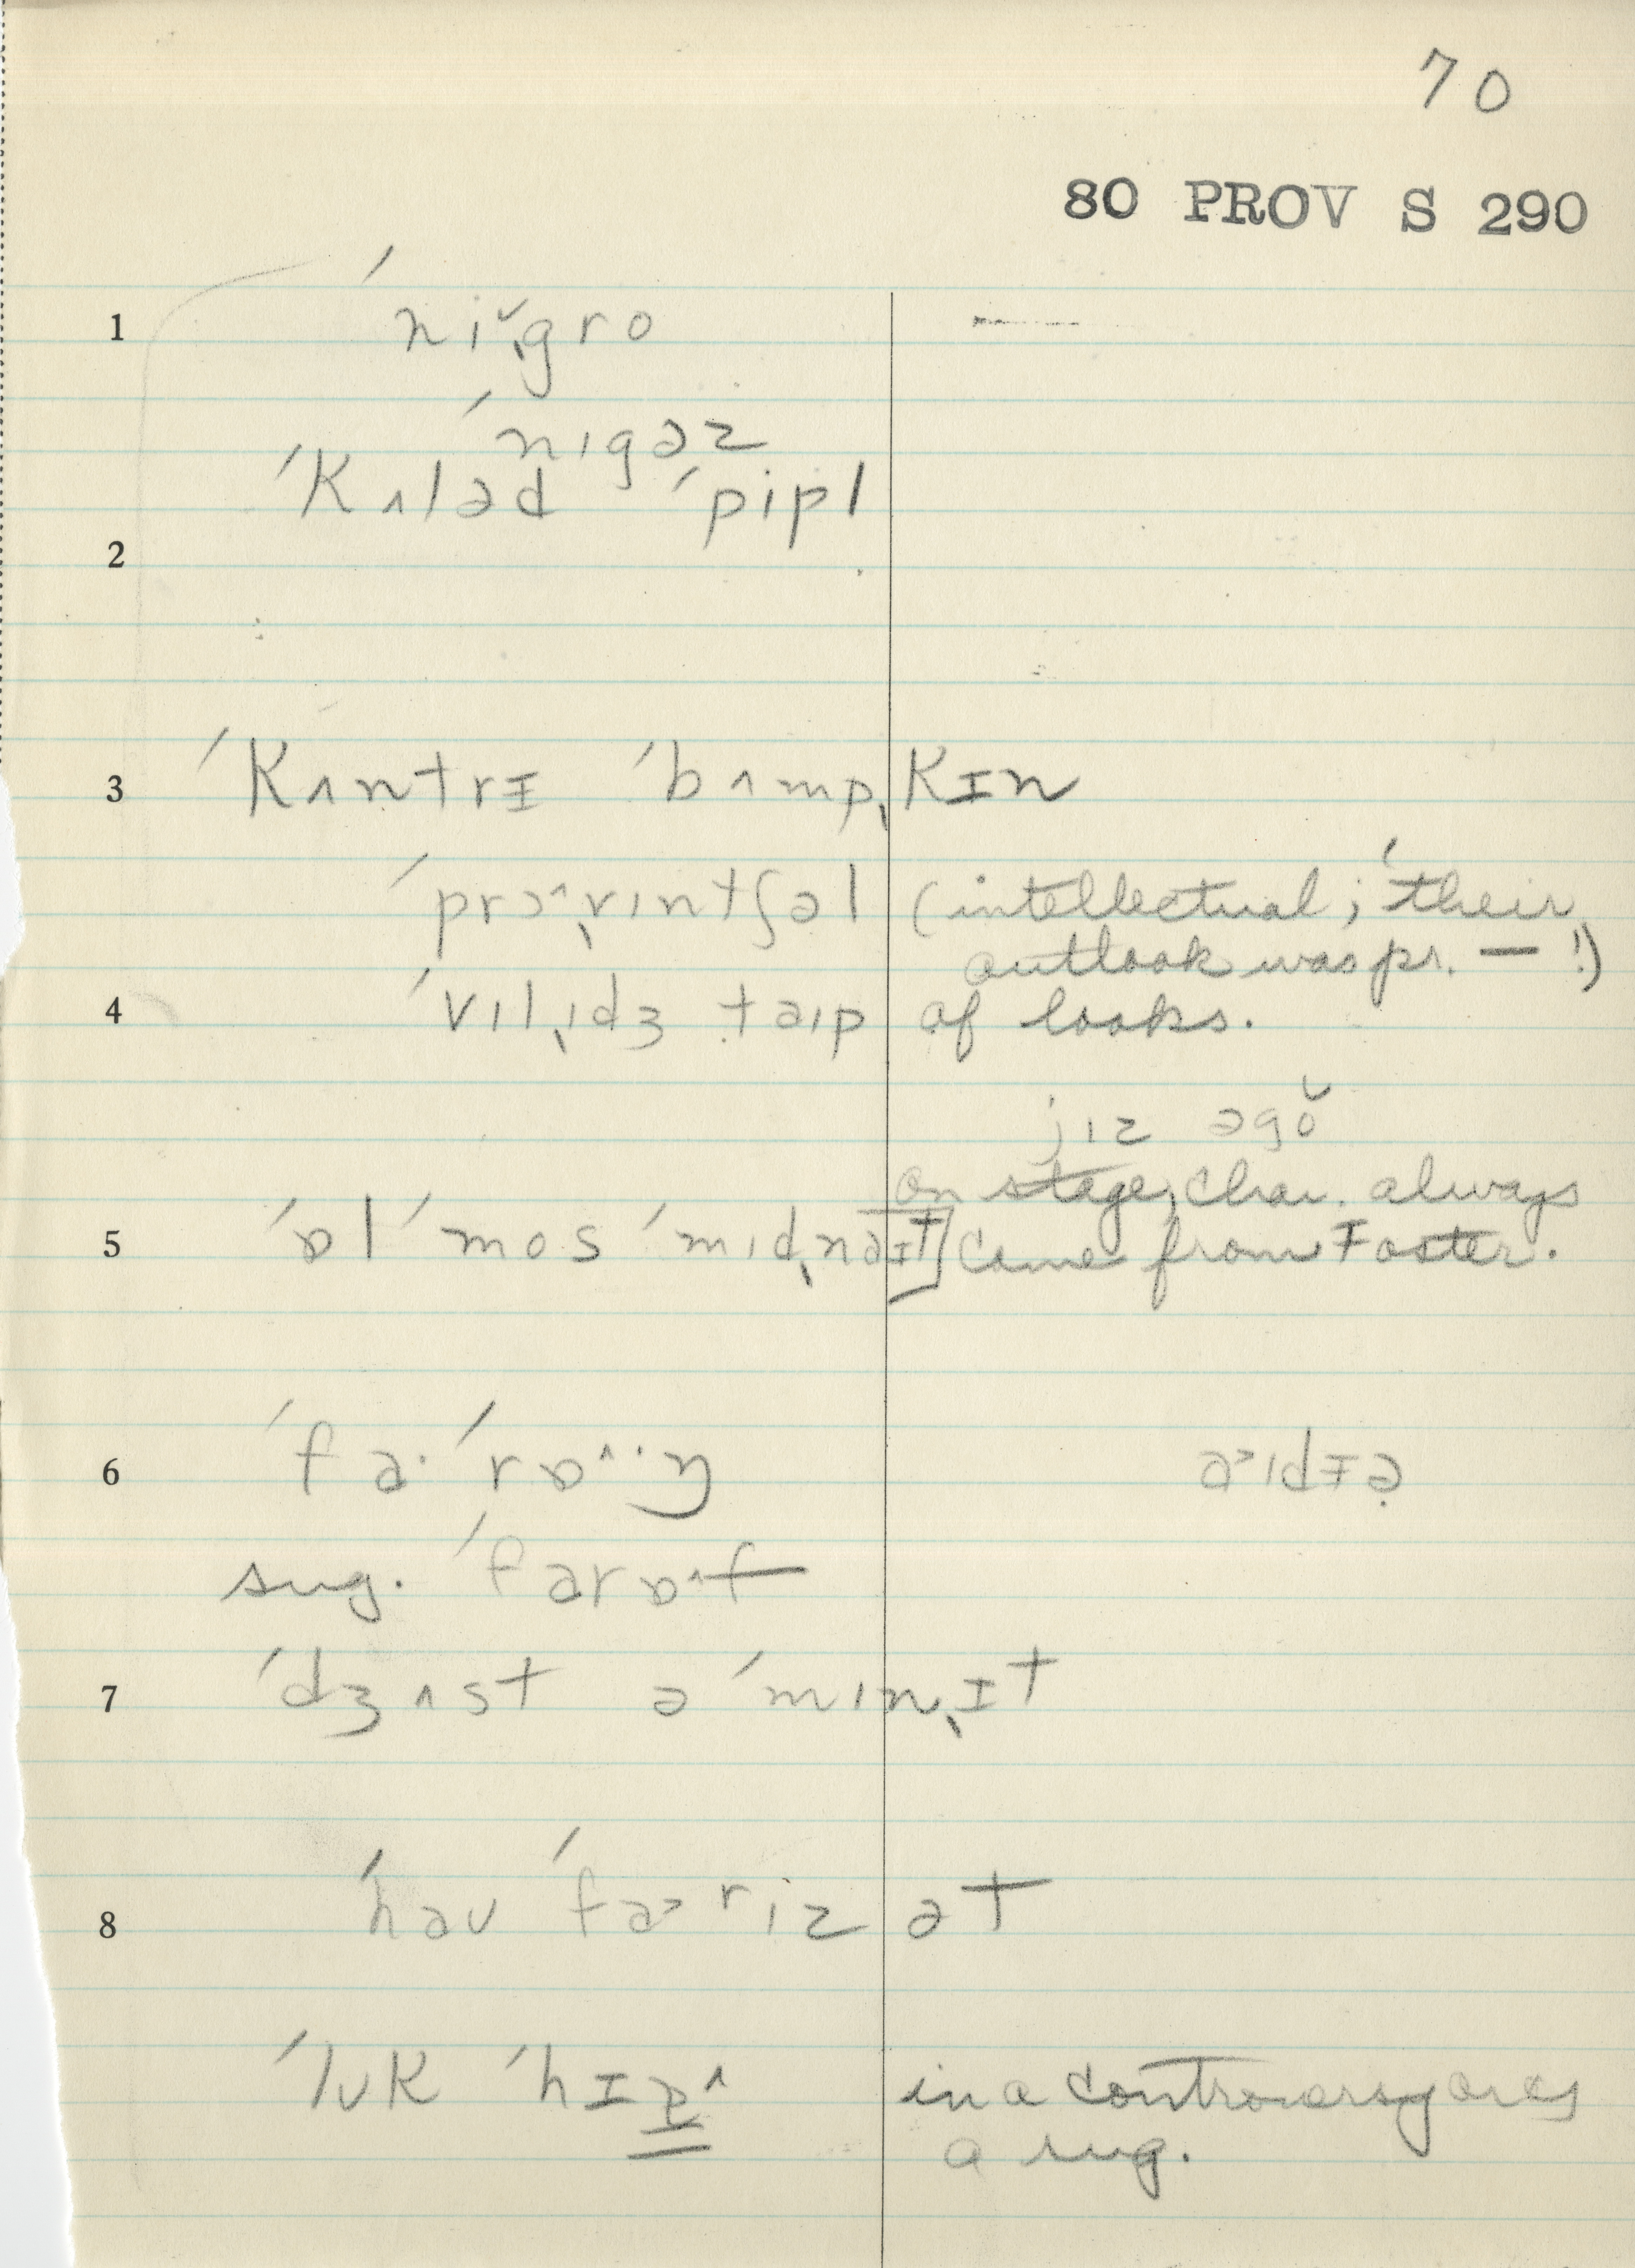 70
80 PROV S 290
1 ˈniˇˌgro —
ˈnɪgəz
ˈkʌləd ˈpipl
2
3 ˈkʌntrɪ ˈbʌmpˌkɪn
ˈprɔ^ˌvɪntʃəl (intellectual; their
outlook was pr. — !)
4 ˈvɪlˌɪdʒ taɪp of looks.
jɪz əgŏ
on stage, char. always
5 ˈɒl ˈmos ˈmɪdˌnaɪt] come from Foster.
6 ˈfa· ˈrɒ^·ŋ aɪdɪə
sug. ˈfarɒ^f
7 ˈdʒʌst ə ˈmɪnˌɪt
8 ˈhaʊ ˈfa riz ət
ˈlʊk ˈhɪ in a controversy
a sug.